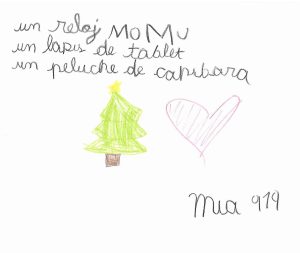 un reloj MOMU
un lapis de tablet
un peluche de capibara
Mia 919